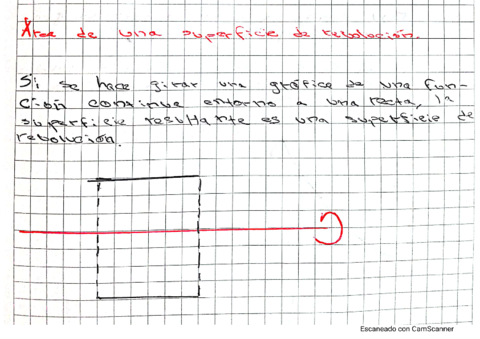 Área de una superficie de rebolocion.
Si se hace girar una gráfica de una fun-
cion continue entorno a una recta, la
superficie resultante es una superficie de
rebolucion.
Escaneado con CamScanner